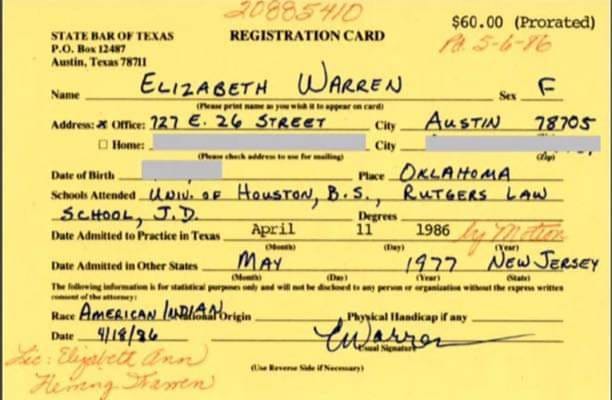 20885410
STATE BAR OF TEXAS REGISTRATION CARD $60.00 (Prorated)
P.O. Box 12487 Pd. 5-6-86
Austin, Texas 78711
Name ELIZABETH WARREN Sex F
(Please print name as you wish it to appear on card)
Address: x Office: 727 E. 26 STREET City AUSTIN 78705
☐ Home: City
(Please check address to use for mailing) (Zip)
Date of Birth Place OKLAHOMA
Schools Attended UNIV. OF HOUSTON, B.S., RUTGERS LAW
SCHOOL, J.D. Degrees
Date Admitted to Practice in Texas April 11 1986 by Motion
(Month) (Day) (Year)
Date Admitted in Other States MAY 1977 NEW JERSEY
(Month) (Day) (Year) (State)
The following information is for statistical purposes only and will not be disclosed to any person or organization without the express written
consent of the attorney:
Race AMERICAN INDIAN National Origin Physical Handicap if any
Date 4/18/86 EWarren
Usual Signature
Lic: Elizabeth Ann
Herring Warren
(Use Reverse Side if Necessary)